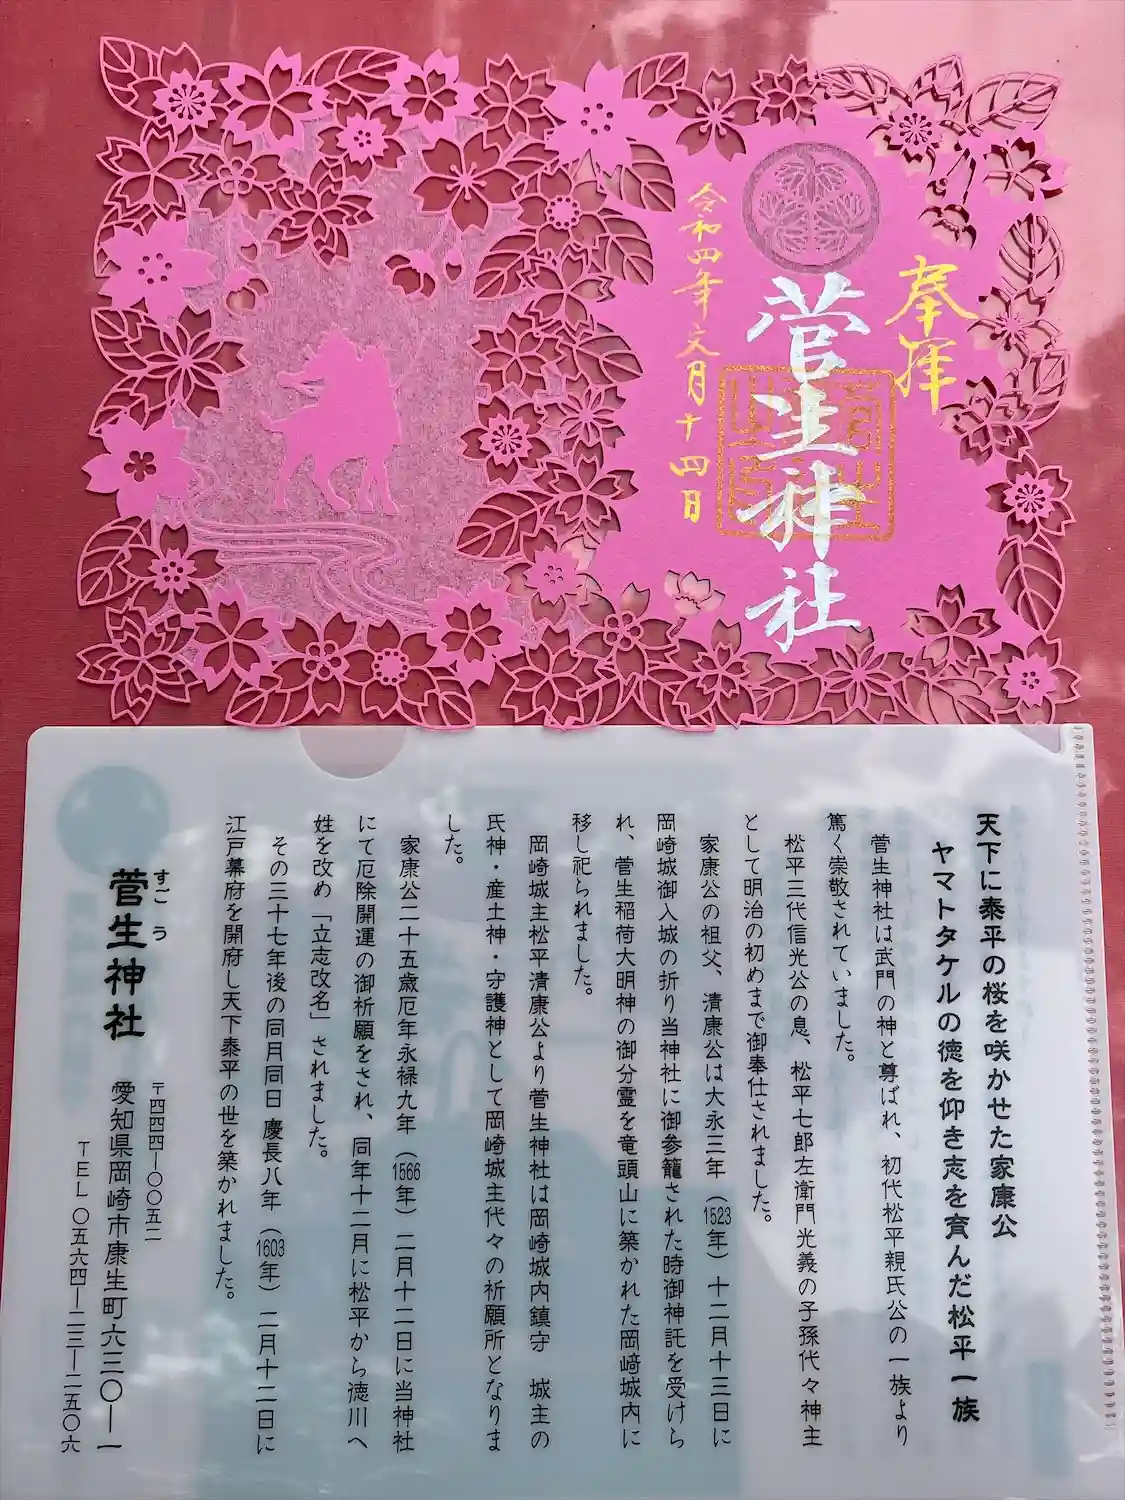 奉拝
菅生神社
令和四年文月十四日
天下に泰平の桜を咲かせた家康公
ヤマトタケルの徳を仰き志を育んだ松平一族
菅生神社は武門の神と尊ばれ、初代松平親氏公の一族より
篤く崇敬されていました。
松平三代信光公の息、松平七郎左衛門光義の子孫代々神主
として明治の初めまで御奉仕されました。
家康公の祖父、清康公は大永三年（1523年）十二月十三日に
岡崎城御入城の折り当神社に御参籠された時御神託を受けら
れ、菅生稲荷大明神の御分霊を竜頭山に築かれた岡﨑城内に
移し祀られました。
岡崎城主松平清康公より菅生神社は岡崎城内鎮守　城主の
氏神・産土神・守護神として岡崎城主代々の祈願所となりま
した。
家康公二十五歳厄年永禄九年（1566年）二月十二日に当神社
にて厄除開運の御祈願をされ、同年十二月に松平から徳川へ
姓を改め「立志改名」されました。
その三十七年後の同月同日 慶長八年（1603年）二月十二日に
江戸幕府を開府し天下泰平の世を築かれました。
すごう
菅生神社
〒四四四―〇〇五二
愛知県岡崎市康生町六三〇―一
ＴＥＬ〇五六四―二三―二五〇六